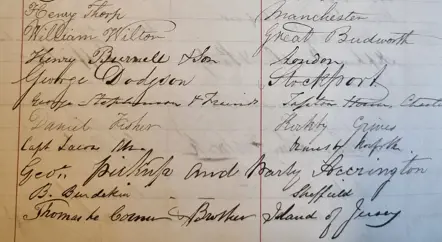 Henry Thorp Manchester
William Wilton Great Budworth
Henry Burnell & Son London
George Dodgson Stockport
George Stephenson & Friends Chester
Daniel Fisher Kirkby
Capt
Geo. and Party Accrington
B. Burdekin Sheffield
Thomas Le Cornu & Brother Island of Jersey